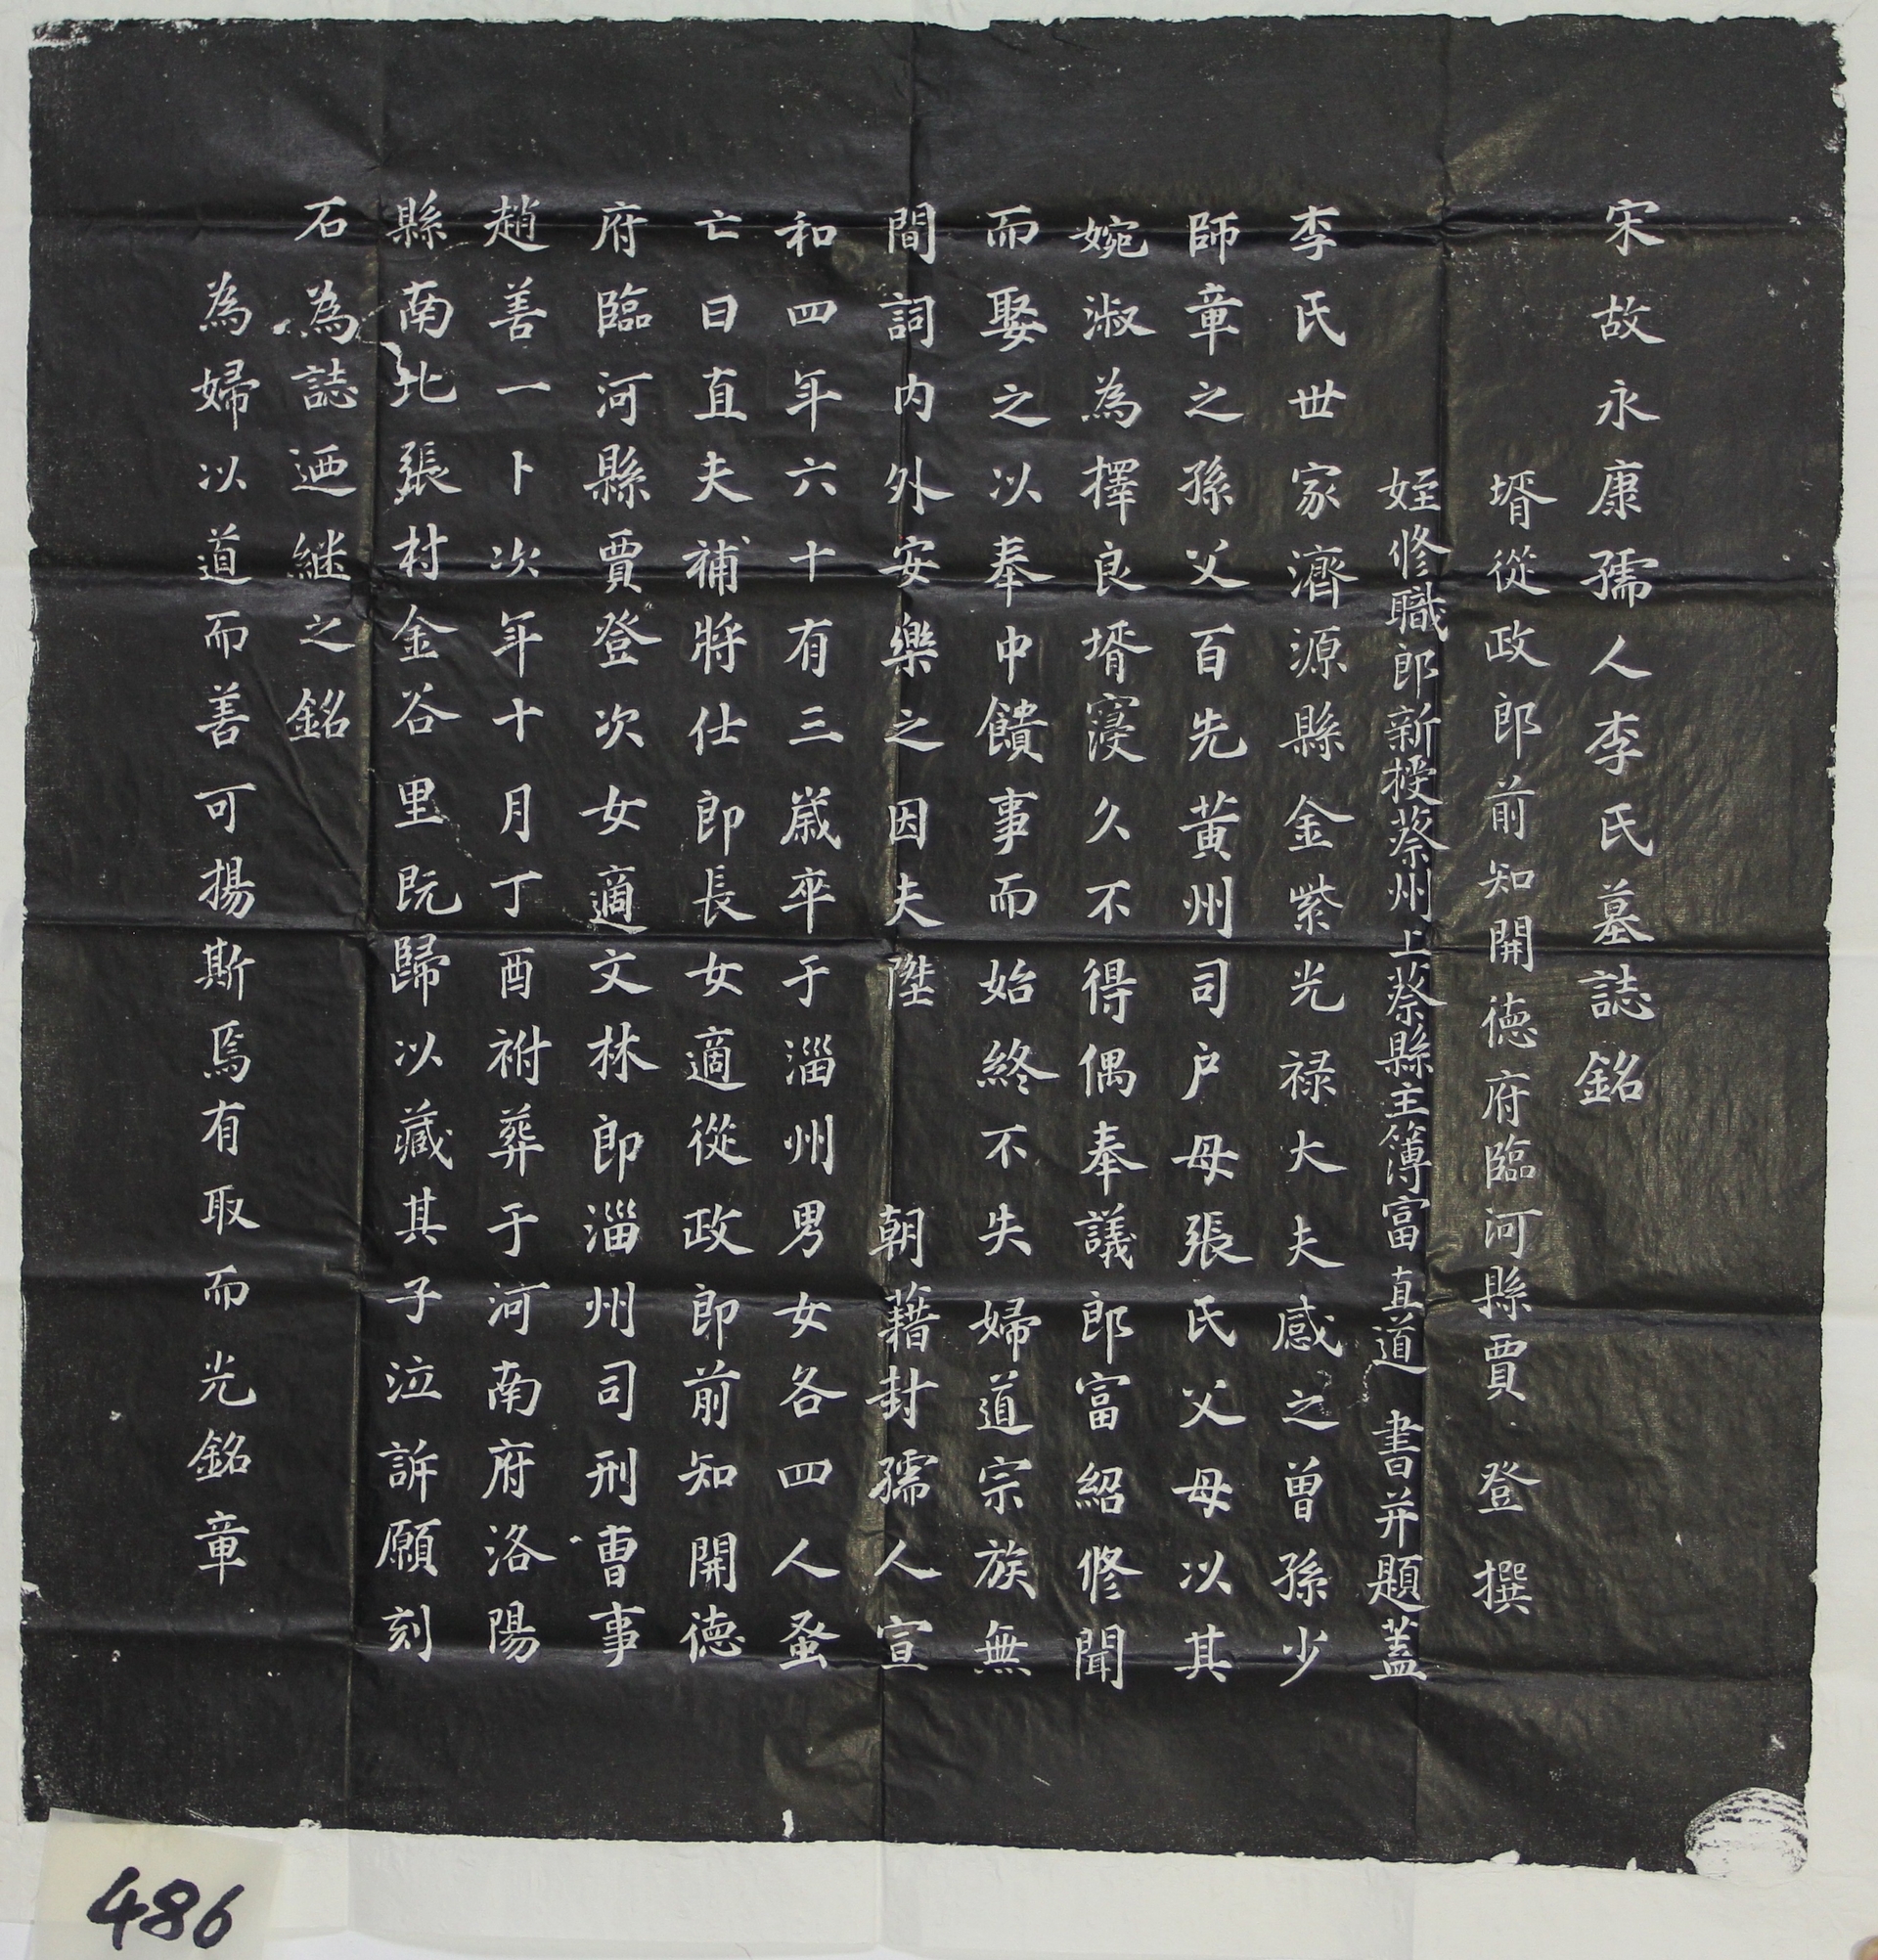 宋故永康孺人李氏墓誌銘
壻從政郎前知開德府臨河縣賈登撰
姪修職郎新授蔡州上蔡縣主簿富直道書并題蓋
李氏世家濟源縣金紫光禄大夫感之曾孫少
師章之孫父百先黄州司户母張氏父母以其
婉淑為擇良壻寖久不得偶奉議郎富紹修聞
而娶之以奉中饋事而始終不失婦道宗族無
間詞内外安樂之因夫陞朝藉封孺人宣
和四年六十有三歳卒于淄州男女各四人蚤
亡曰直夫補將仕郎長女適從政郎前知開德
府臨河縣賈登次女適文林郎淄州司刑曹事
趙善一卜次年十月丁酉祔葬于河南府洛陽
縣南北張村金谷里既歸以藏其子泣訴願刻
石為誌迺継之銘
為婦以道而善可揚斯焉有取而光銘章
486